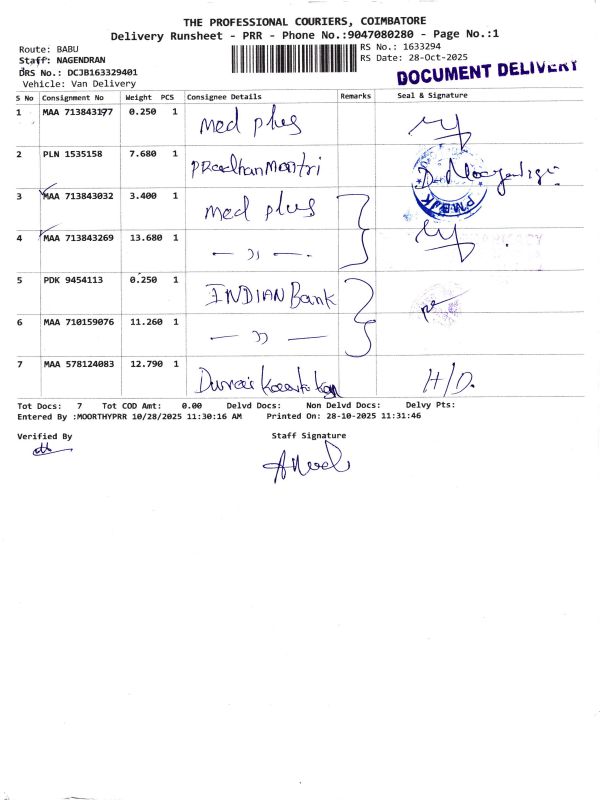 THE PROFESSIONAL COURIERS, COIMBATORE
Delivery Runsheet - PRR - Phone No.:9047080280 - Page No.:1
Route: BABU
RS No.: 1633294
Staff: NAGENDRAN
RS Date: 28-Oct-2025
DRS No.: DCJB163329401
DOCUMENT DELIVERY
Vehicle: Van Delivery
S No Consignment No Weight PCS Consignee Details Remarks Seal & Signature
1 MAA 713843177 0.250 1 Med plus
2 PLN 1535158 7.680 1 PRadhanMantri
3 MAA 713843032 3.400 1 med plus
4 MAA 713843269 13.680 1 — ,, —
5 PDK 9454113 0.250 1 INDIAN Bank
6 MAA 710159076 11.260 1 — ,, —
7 MAA 578124083 12.790 1 H/D.
Tot Docs: 7 Tot COD Amt: 0.00 Delvd Docs: Non Delvd Docs: Delvy Pts:
Entered By :MOORTHYPRR 10/28/2025 11:30:16 AM Printed On: 28-10-2025 11:31:46
Verified By Staff Signature